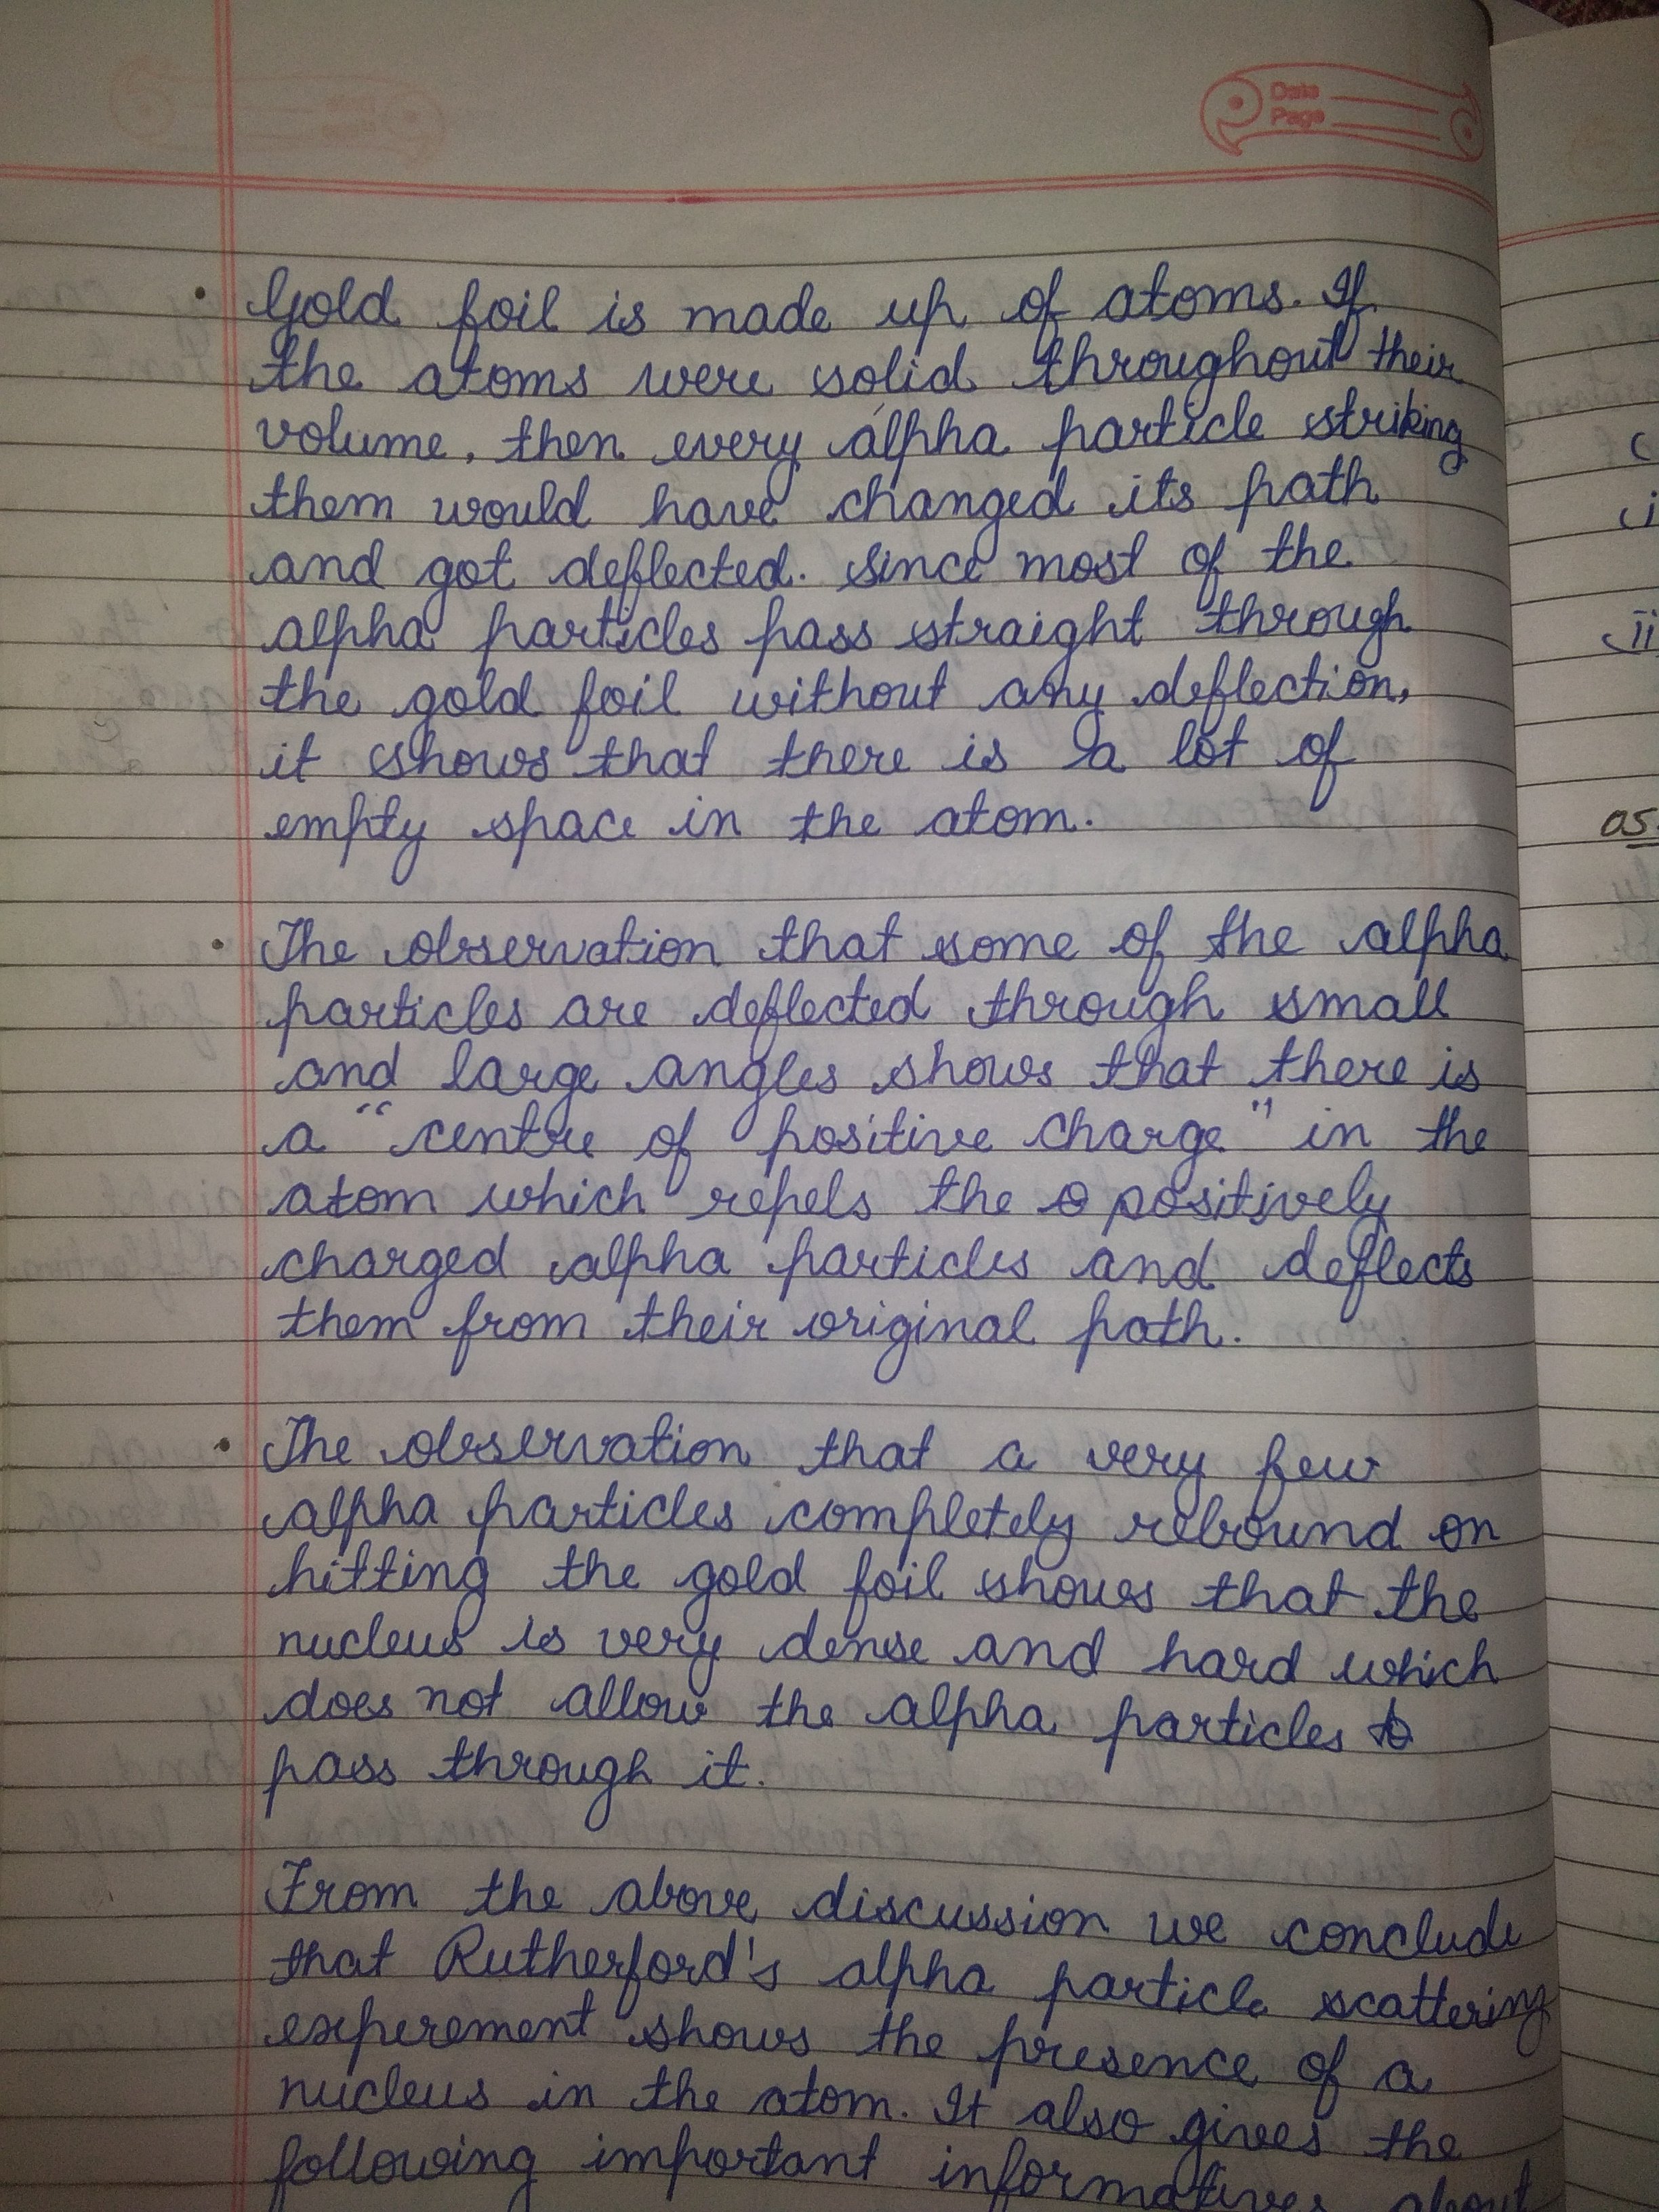 Data
Page
• Gold foil is made up of atoms. If
the atoms were solid throughout their
volume, then every alpha particle striking
them would have changed its path
and got deflected. Since most of the
alpha particles pass straight through
the gold foil without any deflection,
it shows that there is a lot of
empty space in the atom.
• The observation that some of the alpha
particles are deflected through small
and large angles shows that there is
a "centre of positive charge" in the
atom which repels the positively
charged alpha particles and deflects
them from their original path.
• The observation that a very few
alpha particles completely rebound on
hitting the gold foil shows that the
nucleus is very dense and hard which
does not allow the alpha particles to
pass through it.
From the above discussion we conclude
that Rutherford's alpha particle scattering
experement shows the presence of a
nucleus in the atom. It also gives the
following important informatives about